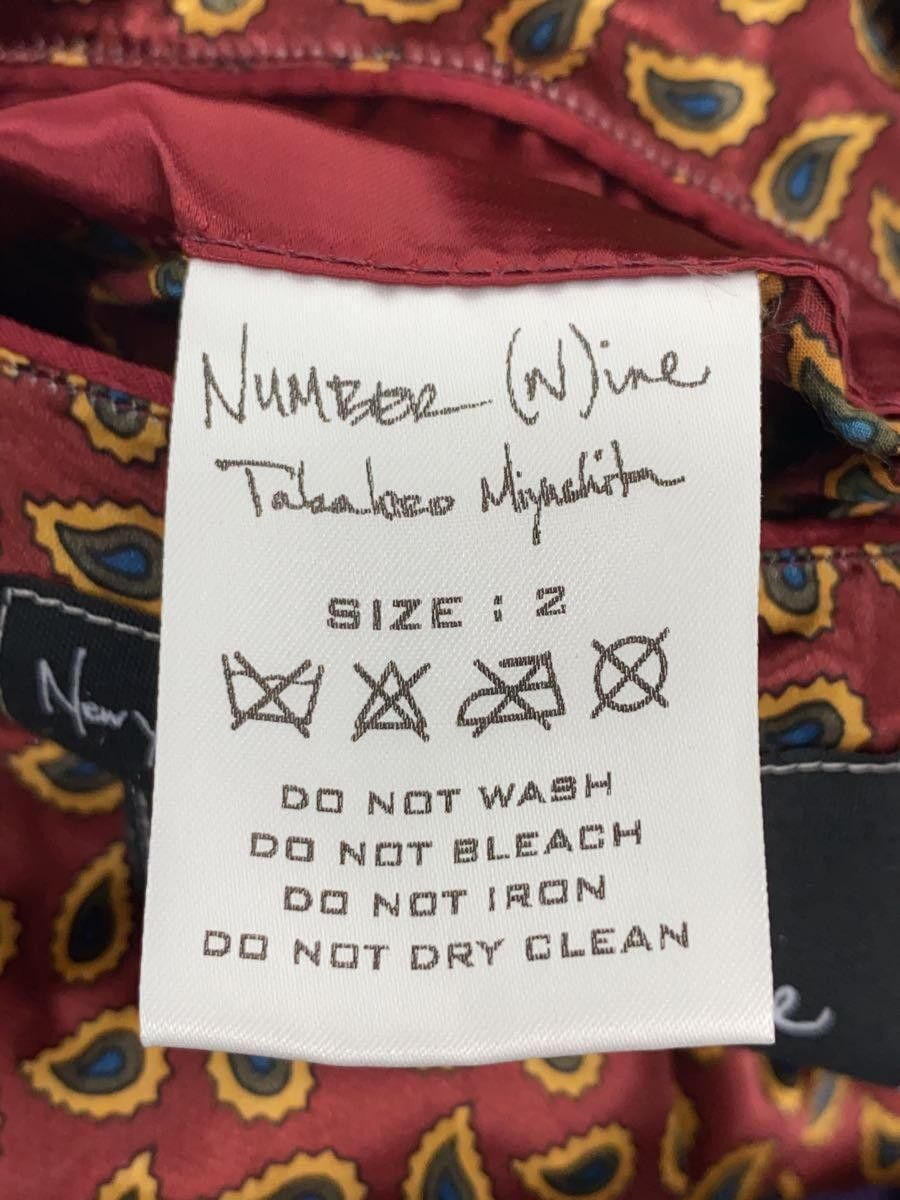 NUMBER (N)ine
Takahiro Miyashita
SIZE : 2
DO NOT WASH
DO NOT BLEACH
DO NOT IRON
DO NOT DRY CLEAN
New